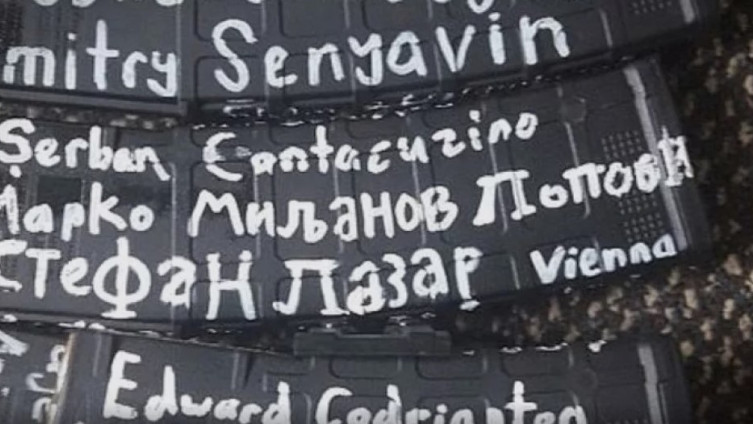 mitry Senyavin
Şerban Cantacuzino
Марко Миљанов Попови
Стефан Лазар Vienna
Edward Codrington